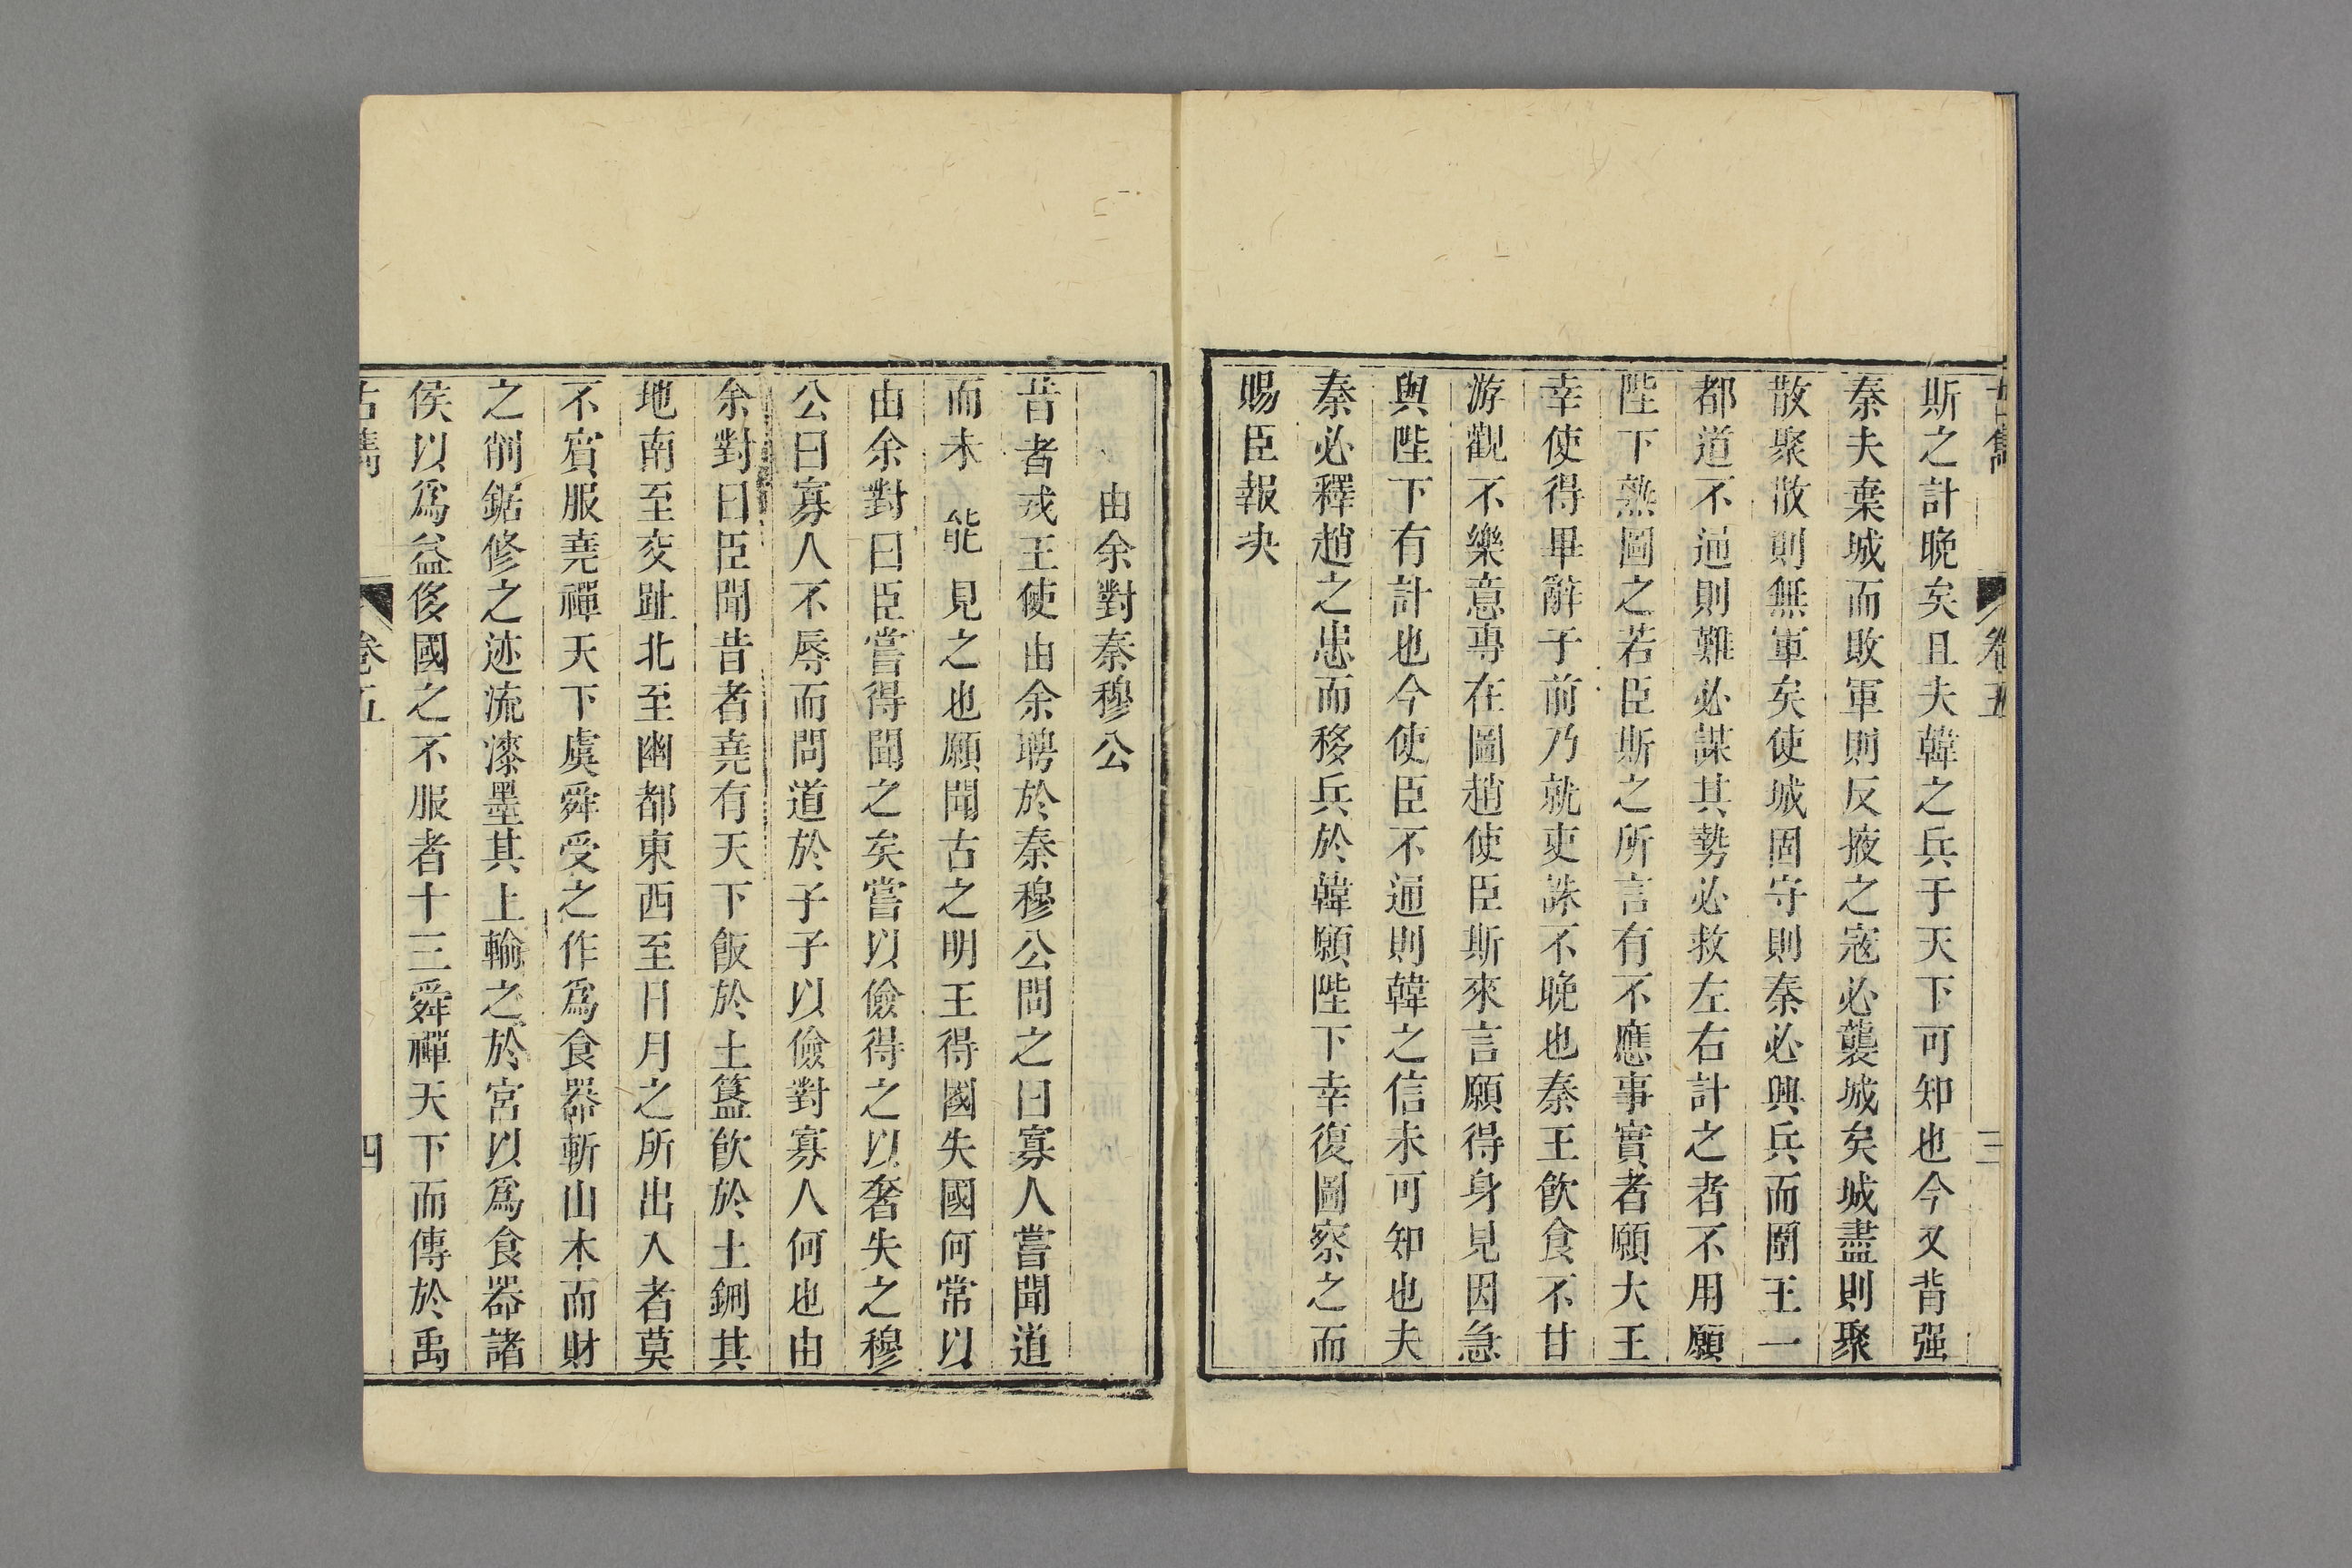 古雋 卷五 三
斯之計晚矣且夫韓之兵于天下可知也今又背强
秦夫棄城而敗軍則反掖之寇必襲城矣城盡則聚
散聚散則無軍矣使城固守則秦必興兵而圍王一
都道不通則難必謀其勢必救左右計之者不用願
陛下熟圖之若臣斯之所言有不應事實者願大王
幸使得畢辭于前乃就吏誅不晚也秦王飲食不甘
游觀不樂意專在圖趙使臣斯來言願得身見因急
與陛下有計也今使臣不通則韓之信未可知也夫
秦必釋趙之患而移兵於韓願陛下幸復圖察之而
賜臣報決
由余對秦穆公
昔者戎王使由余聘於秦穆公問之曰寡人嘗聞道
而未能見之也願聞古之明王得國失國何常以
由余對曰臣嘗得聞之矣嘗以儉得之以奢失之穆
公曰寡人不辱而問道於子子以儉對寡人何也由
余對曰臣聞昔者堯有天下飯於土簋飲於土鉶其
地南至交趾北至幽都東西至日月之所出入者莫
不賓服堯禪天下虞舜受之作爲食器斬山木而財
之削鋸修之迹流漆墨其上輸之於宮以爲食器諸
侯以爲益侈國之不服者十三舜禪天下而傳於禹
古雋 卷五 四